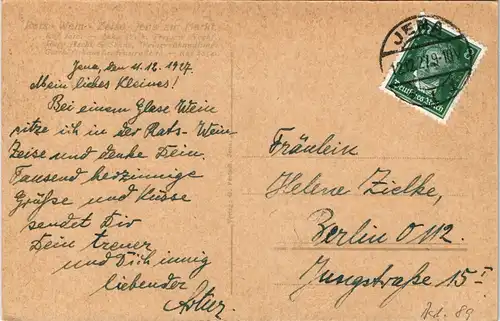 Rats-Wein-Zeise. Jena am Markt.
JENA
Deutsches Reich
Jena, den 11.12.1927.
Mein liebes Kleines!
Bei einem Glase Wein
sitze ich in der Rats-Wein
Zeise und denke Dein.
Tausend herzinnige
Grüße und Küsse
sendet Dir
Dein treuer
und Dich innig
liebender
Artur.
Fräulein
Helene Zielke,
Berlin O 112.
Jungstraße 15 I